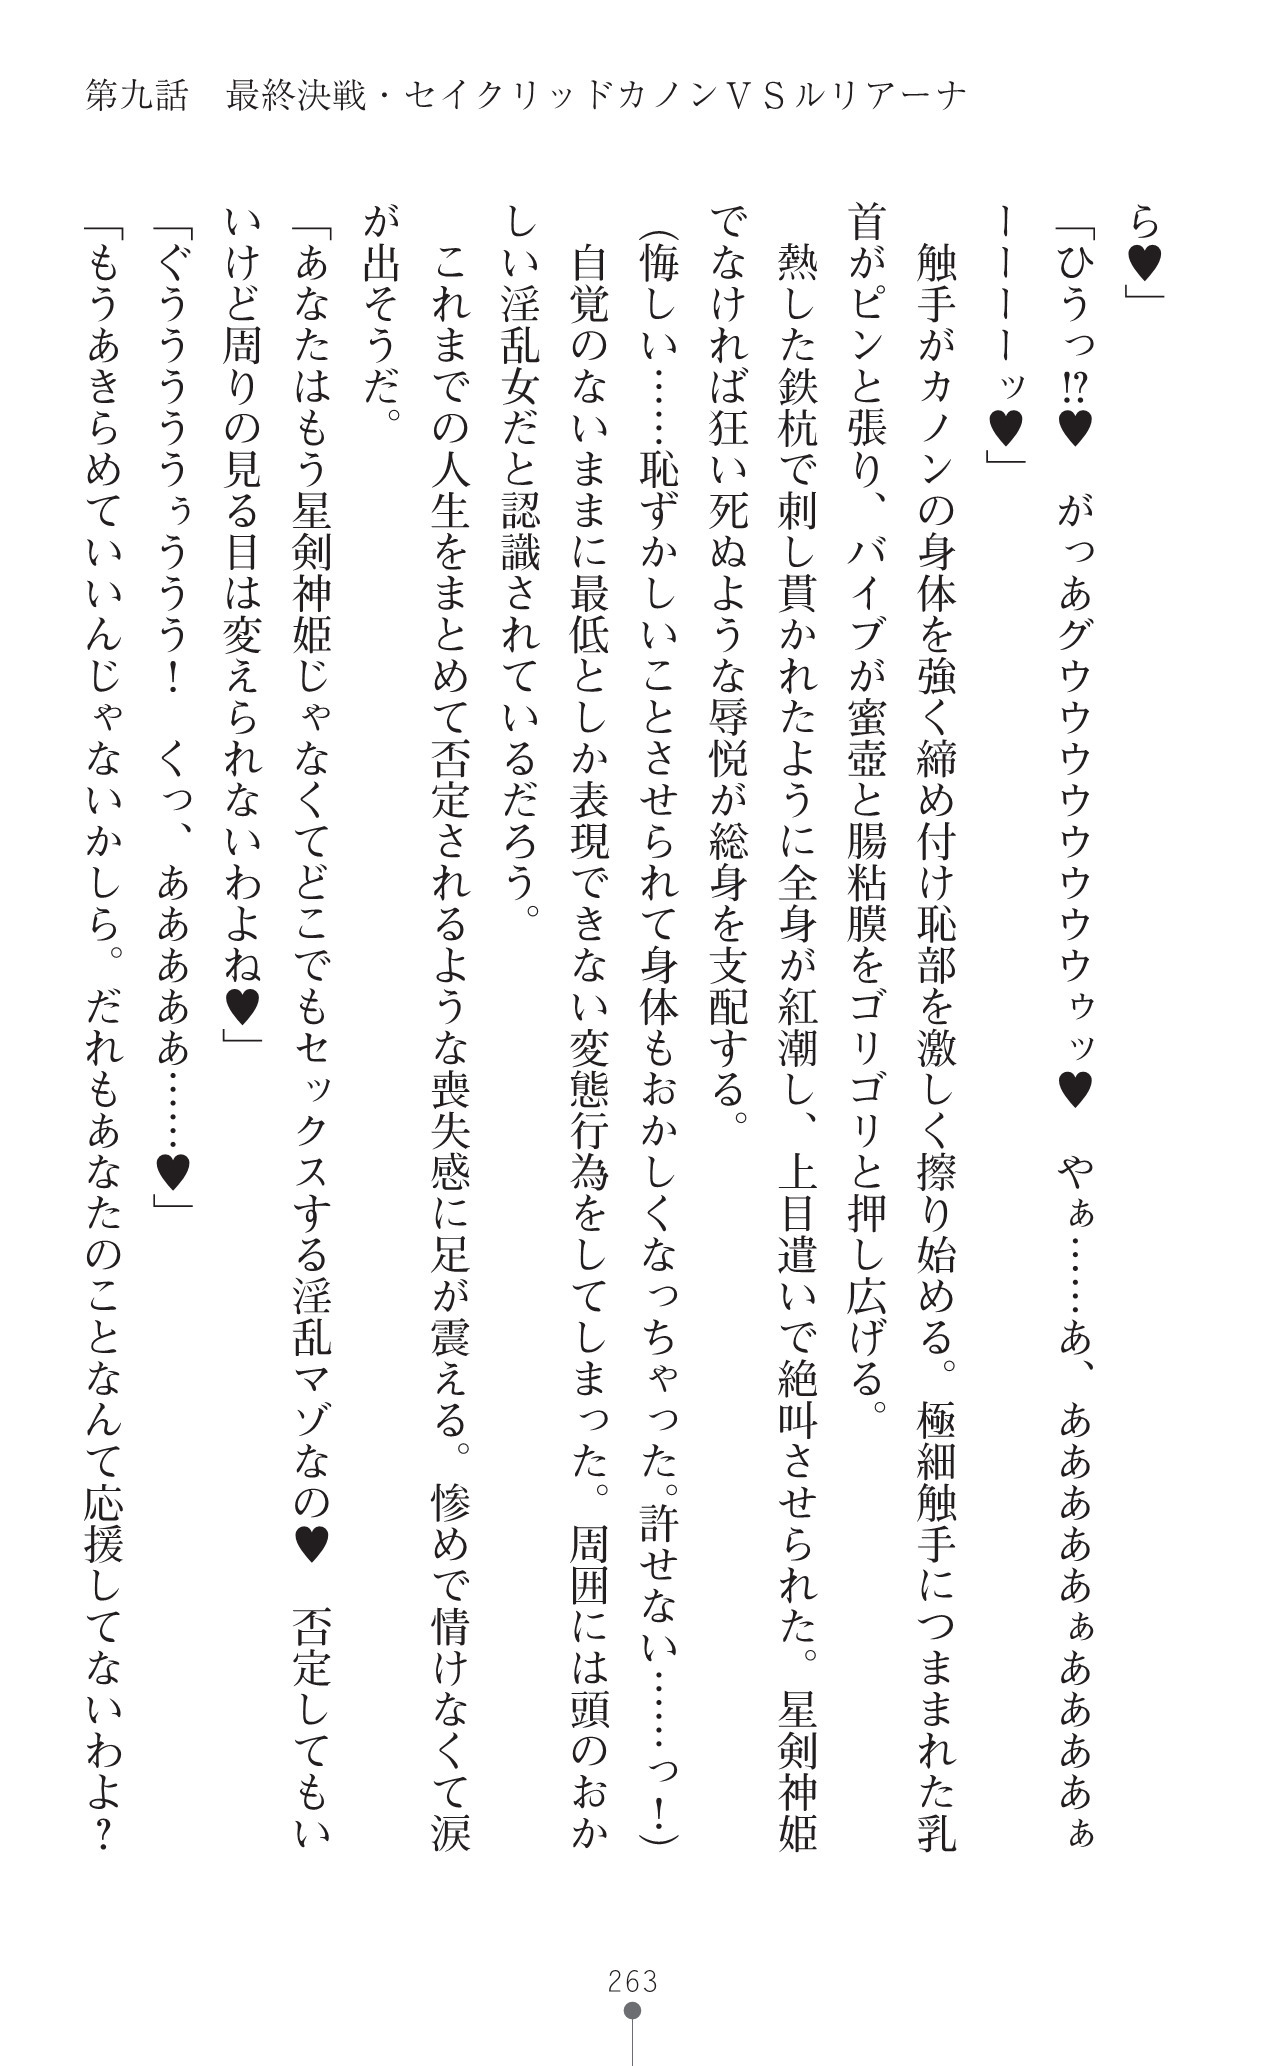 第九話　最終決戦・セイクリッドカノンＶＳルリアーナ
ら♥」
「ひうっ⁉♥　がっあグウウウウウウウウゥッ♥　やぁ……あ、あああああぁああああぁ
ーーーーッ♥」
　触手がカノンの身体を強く締め付け恥部を激しく擦り始める。極細触手につままれた乳
首がピンと張り、バイブが蜜壺と腸粘膜をゴリゴリと押し広げる。
　熱した鉄杭で刺し貫かれたように全身が紅潮し、上目遣いで絶叫させられた。星剣神姫
でなければ狂い死ぬような辱悦が総身を支配する。
（悔しい……恥ずかしいことさせられて身体もおかしくなっちゃった。許せない……っ！）
　自覚のないままに最低としか表現できない変態行為をしてしまった。周囲には頭のおか
しい淫乱女だと認識されているだろう。
　これまでの人生をまとめて否定されるような喪失感に足が震える。惨めで情けなくて涙
が出そうだ。
「あなたはもう星剣神姫じゃなくてどこでもセックスする淫乱マゾなの♥　否定してもい
いけど周りの見る目は変えられないわよね♥」
「ぐうううううぅううう！　くっ、あああああ……♥」
「もうあきらめていいんじゃないかしら。だれもあなたのことなんて応援してないわよ？
263